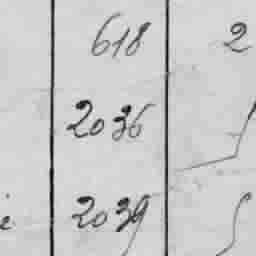 618 2
2036
2039